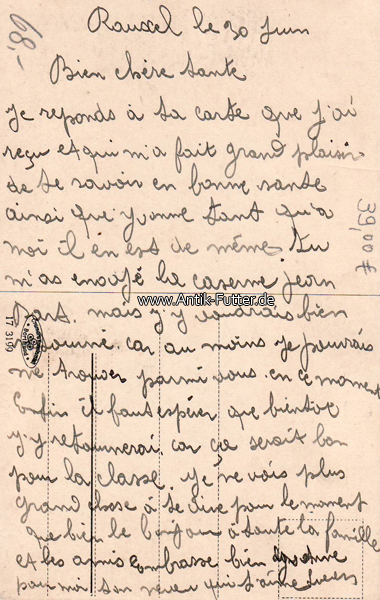 68,-
Rauxel le 30 Juin
Bien chère tante
Je reponds à ta carte que j'ai
reçu et qui m'a fait grand plaisir
de te savoir en bonne sante
ainsi que Yvonne tant qu'a
moi il en est de même. Tu
39,00 €
m'as envoyé la caserne Jean
www.Antik-Futter.de
Bart. mais j'y voudrais bien
retourné car au moins je pourrais
me trouver parmi vous. en ce moment
Enfin il faut espérer que bientot
j'y retournerai. car ça serait bon
pour la classe. Je ne vois plus
grand chose à te dire pour le moment
que bien le bonjour à toute la famille
et les amis embrasse bien Yvonne
pour moi ton neveu qui t'aime
17 3190